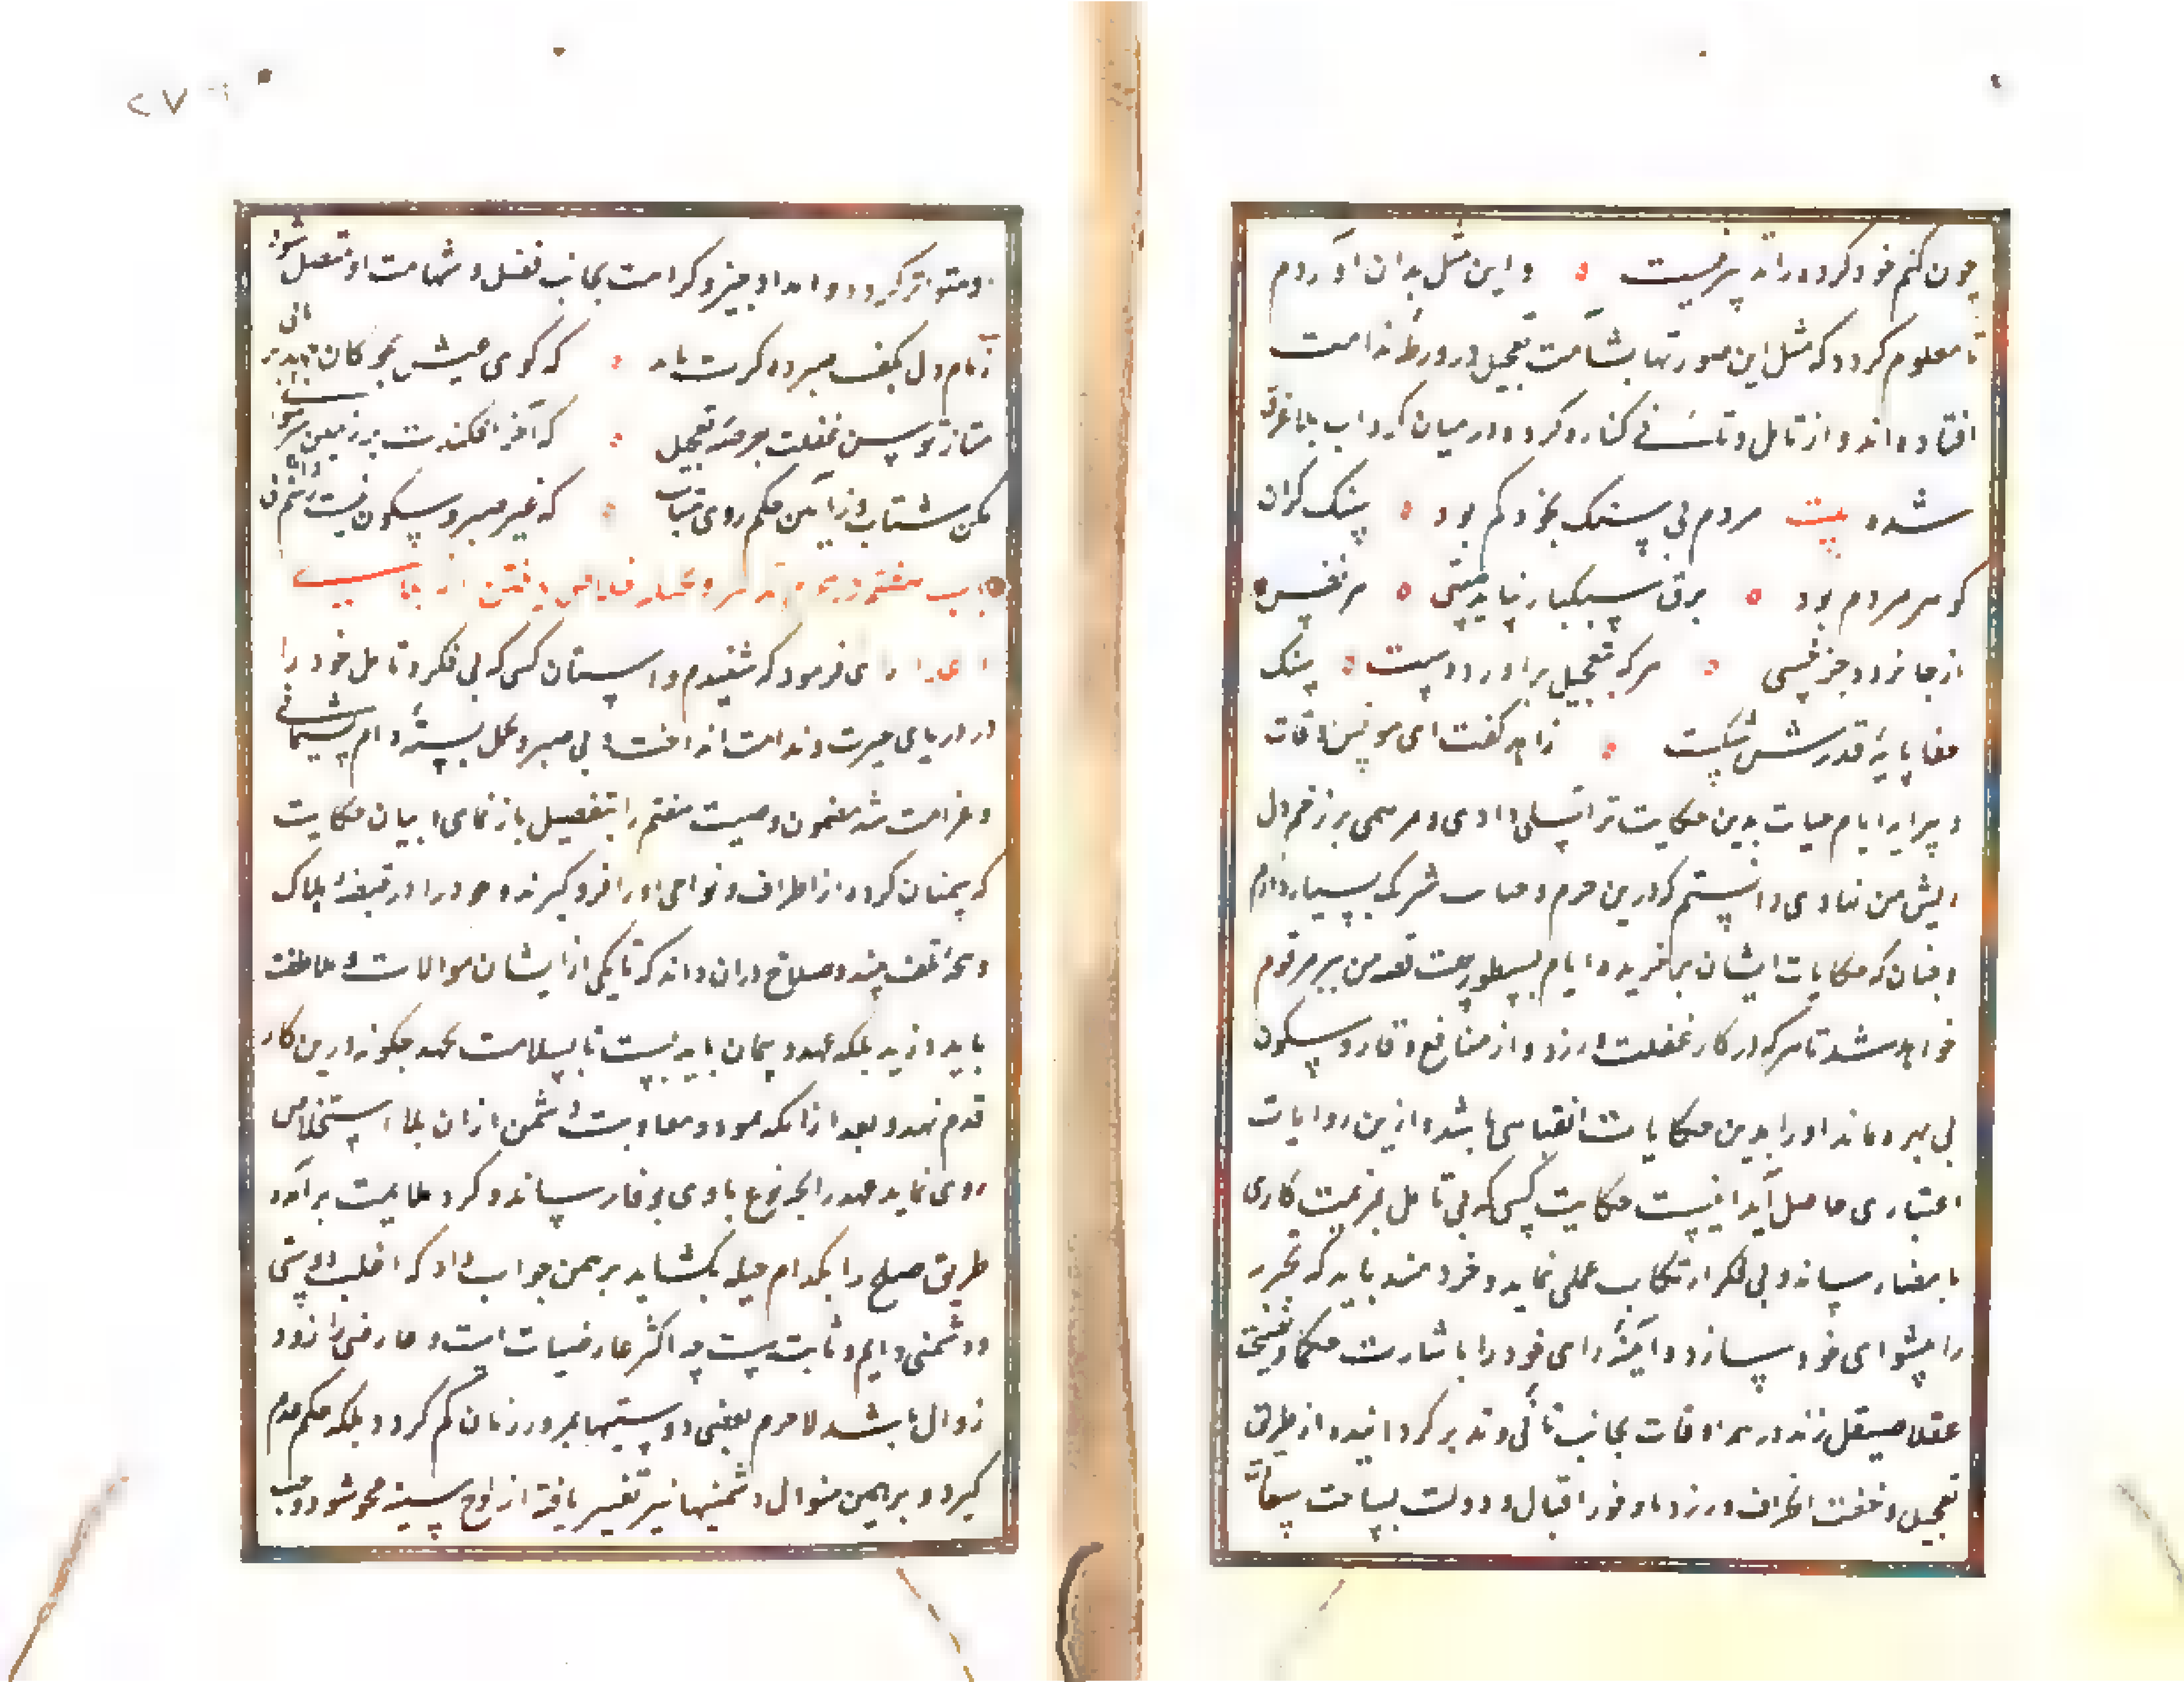 چون کنم خود کرده را تدبیر نیست و این مثل بدان آوردم
تا معلوم کردد که مثل این صورتها بشآمت تعجیل در ورطه ندامت
افتاده اند و از تامل و تانی کناره کرده در میان کرداب بلا غرق
شده بیت مردم بی سنک بخرد کم بود سنک کران
کوهر مردم بود برق سبکبار نیاید بسی هر نفس
از جا نرود جز خسی هر که بتعجیل برآورد دست سنک
جفا پایه قدرش شکست زاهد کفت ای مونس اوقات
و پیرایه ایام حیات بدین حکایت مرا تسلی دادی و مرهمی بر زخم دل
ریش من نهادی دانستم که درین جرم و جنایت شریک بسیار دارم
و چنان که حکایات ایشان بر جریده ایام مسطورست قصه من نیز مرقوم
خواهد شد تا هر که در کار غفلت ورزد و از منافع وقار و سکون
بی بهره ماند او را بدین حکایات انتباهی باشد و ازین روایات
اعتباری حاصل آید اینست حکایت کسی که بی تامل عزیمت کاری
بامضا رساند و بی فکر ارتکاب عملی نماید و خردمند باید که تجربه
را پیشوای خود سازد و آینه رای خود را باشارت حکما و نصیحت
عقلا صیقل زند در همه اوقات بجانب تانی و تدبر کراید و از طریق
تعجیل و خفت انحراف ورزد تا وفور اقبال و دولت بساحت سعادت
او متواتر کردد و امداد خیر و کرامت بجانب فضل و شهامت او متصل شود
زمام دل بکف صبر ده کرت باید که کوی عیش بچوکان تدبیر
متاز توسن غفلت بعرصه تعجیل که آخر افکندت بر زمین
مکن شتاب و ز آیین حکم روی متاب که غیر صبر و سکون نیست رسم
باب هفتم در حزم و تدبیر و بحیله خلاص یافتن از بلا
رای فرمود که شنیدم داستان کسی که بی فکر و تامل خود را
در دریای حیرت و ندامت انداخت و بی صبر و تحمل بسته دام پشیمانی
و غرامت شد مضمون وصیت هفتم را بتفصیل باز نمای و بیان حکایت
که دشمنان کرد از اطراف و نواحی او را فرو کیرند و خود را در قبضه هلاک
و تلف بیند و صلاح دران داند که تا با یکی از ایشان موالات و ملاطفت
باید ورزید بلکه عهد و پیمان باید بست تا بسلامت بجهد چکونه درین کار
قدم نهد و بعد از انکه بمدد و معاونت دشمن از آن بلا استخلاص
روی نماید عهد را بچه نوع با وی بوفا رساند و کرد ملایمت برآمده
طریق صلح را بکدام حیله بکشاید برهمن جواب داد که اغلب دوستی
و دشمنی دایم و ثابت نیست چه اکثر عارضیات است و عارضی را زود
زوال باشد لاجرم بعضی دوستیها بمرور زمان کم کردد بلکه حکم عدم
کیرد و بر همین منوال دشمنیها نیز تغییر یافته از لوح سینه محو شود